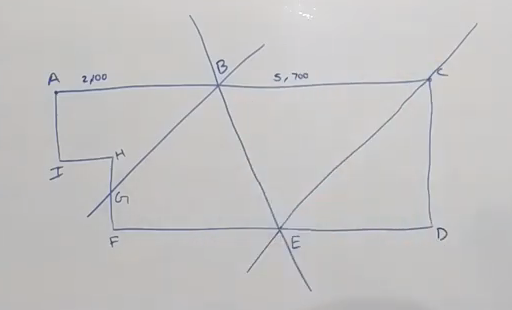 A 2,100 B 5,700 C
I H
G
F E D